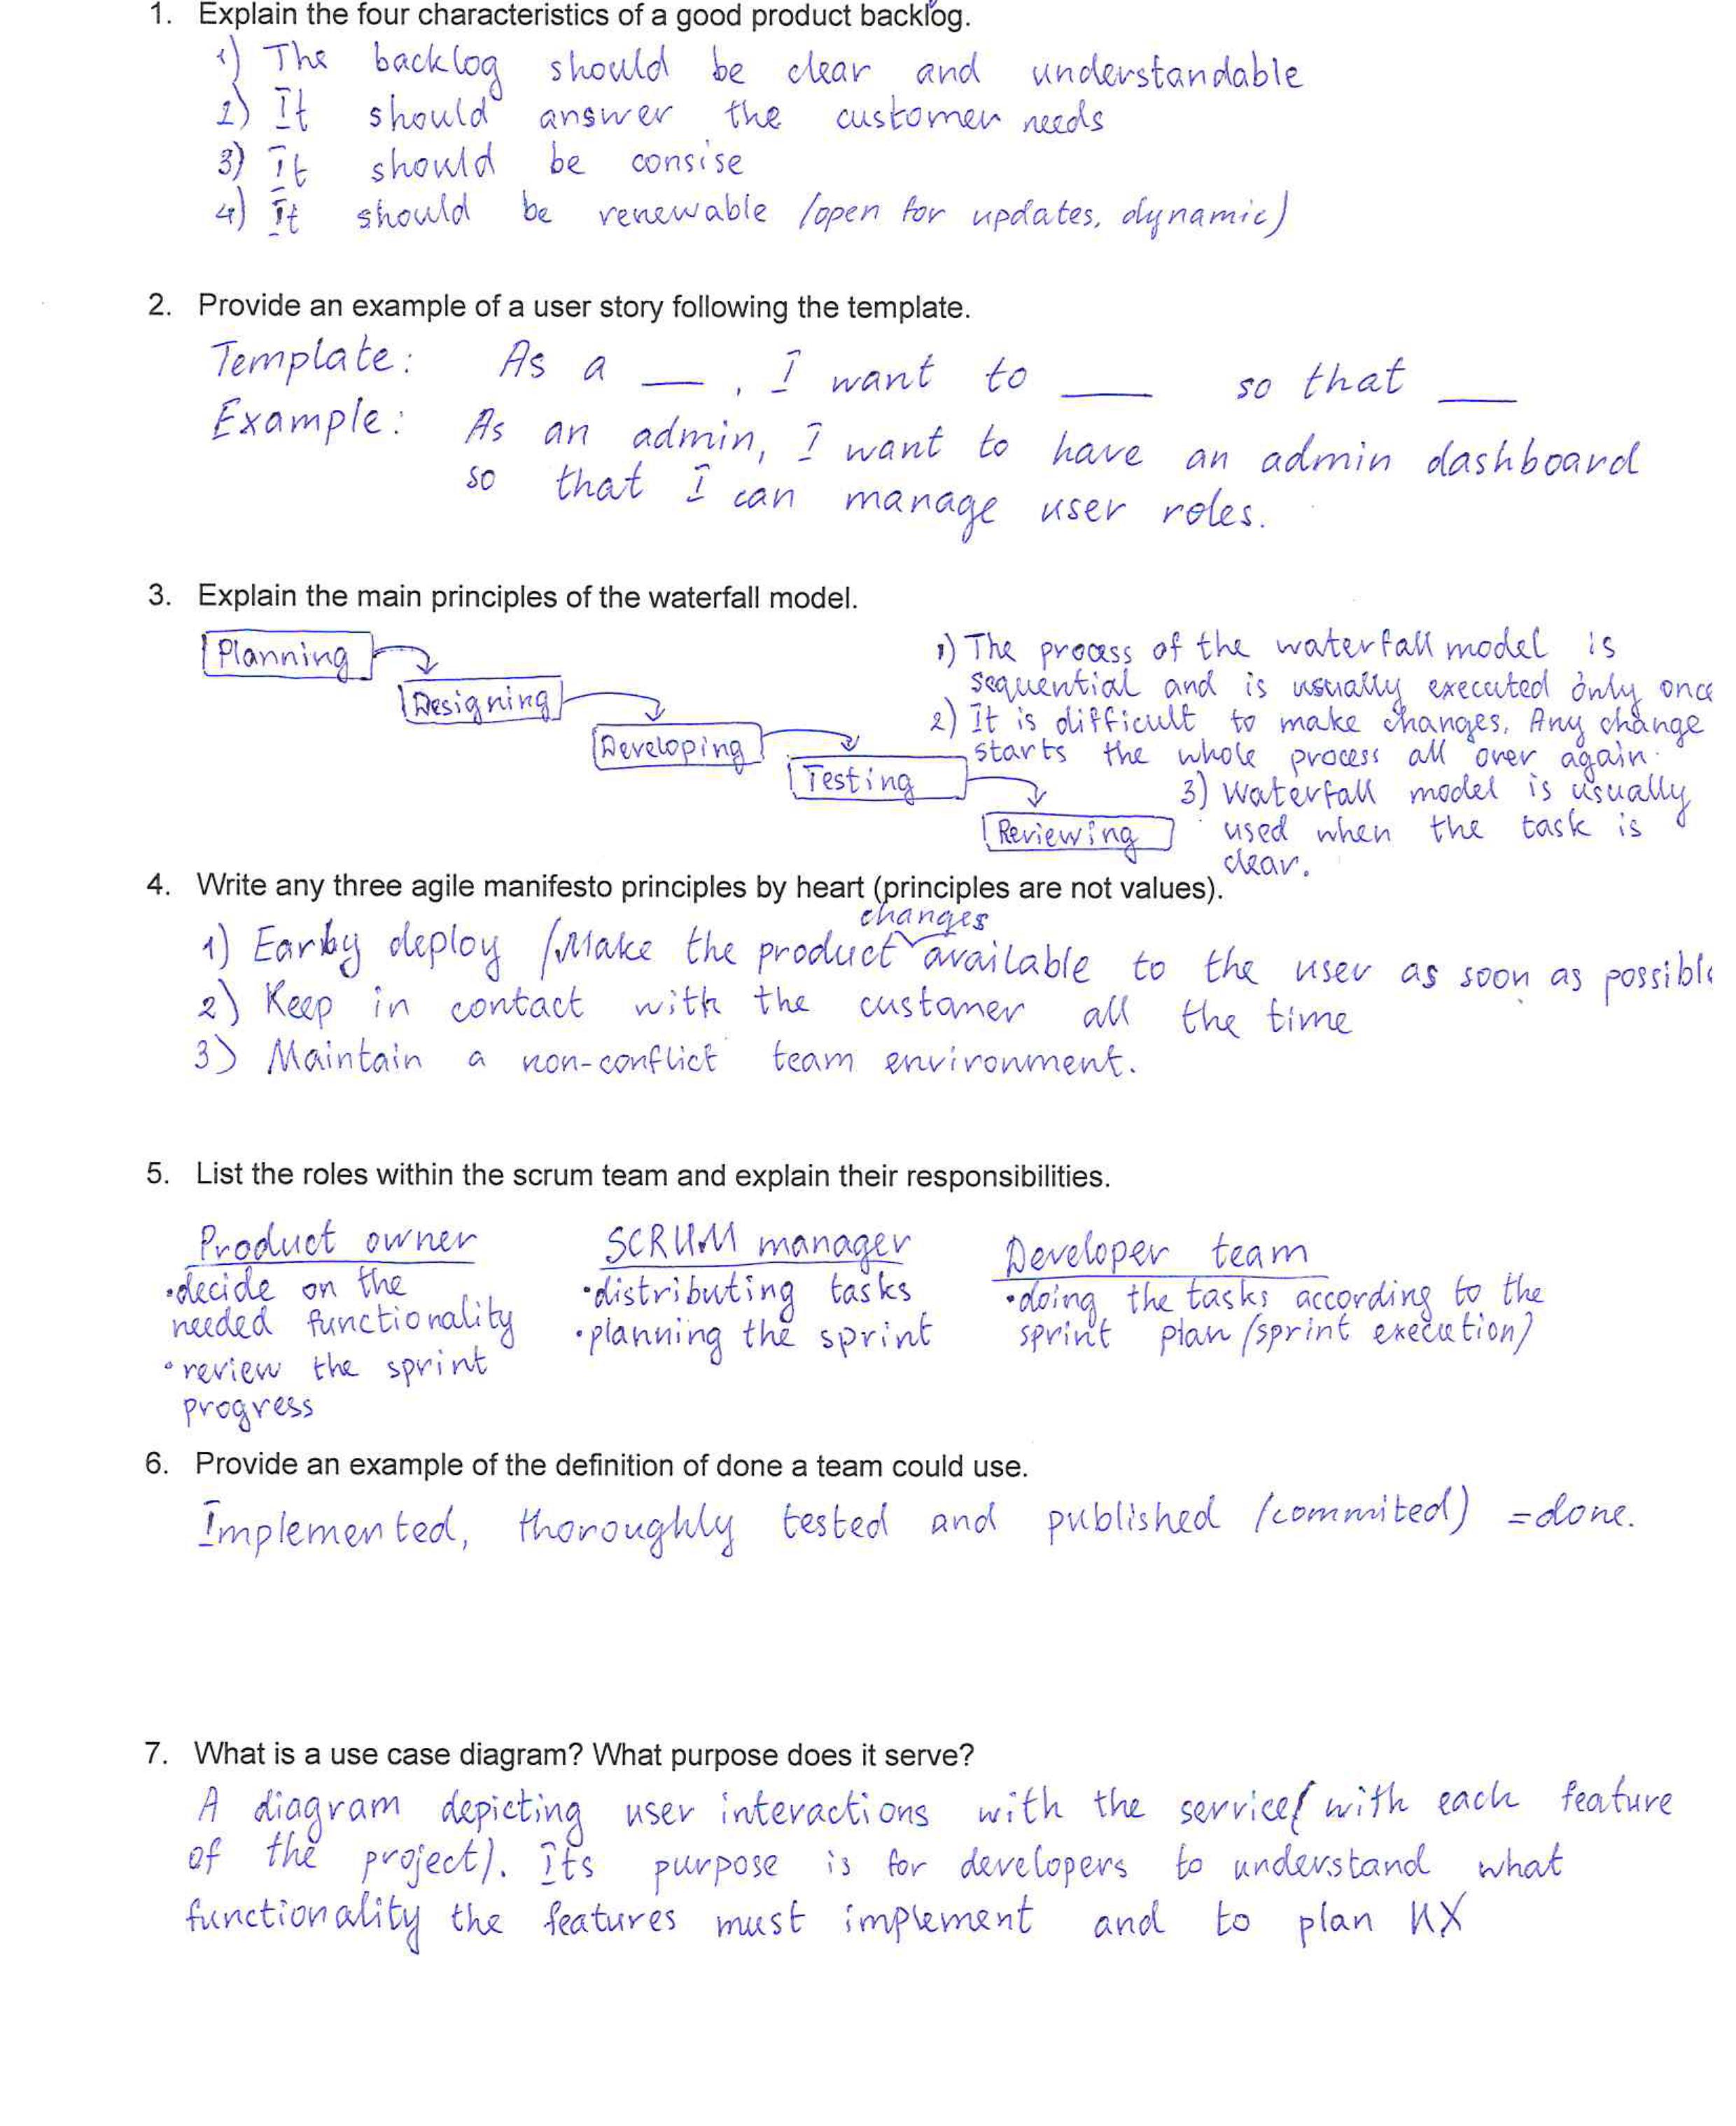 1. Explain the four characteristics of a good product backlog.
1) The backlog should be clear and understandable
2) It should answer the customer needs
3) It should be consise
4) It should be renewable (open for updates, dynamic)
2. Provide an example of a user story following the template.
Template: As a ___, I want to ___ so that ___
Example: As an admin, I want to have an admin dashboard
so that I can manage user roles.
3. Explain the main principles of the waterfall model.
Planning
Designing
Developing
Testing
Reviewing
1) The process of the waterfall model is
sequential and is usually executed only once
2) It is difficult to make changes. Any change
starts the whole process all over again.
3) Waterfall model is usually
used when the task is
clear.
4. Write any three agile manifesto principles by heart (principles are not values).
changes
1) Early deploy (Make the product available to the user as soon as possible
2) Keep in contact with the customer all the time
3) Maintain a non-conflict team environment.
5. List the roles within the scrum team and explain their responsibilities.
Product owner
•decide on the
needed functionality
•review the sprint
progress
SCRUM manager
•distributing tasks
•planning the sprint
Developer team
•doing the tasks according to the
sprint plan (sprint execution)
6. Provide an example of the definition of done a team could use.
Implemented, thoroughly tested and published (commited) =done.
7. What is a use case diagram? What purpose does it serve?
A diagram depicting user interactions with the service( with each feature
of the project). Its purpose is for developers to understand what
functionality the features must implement and to plan UX